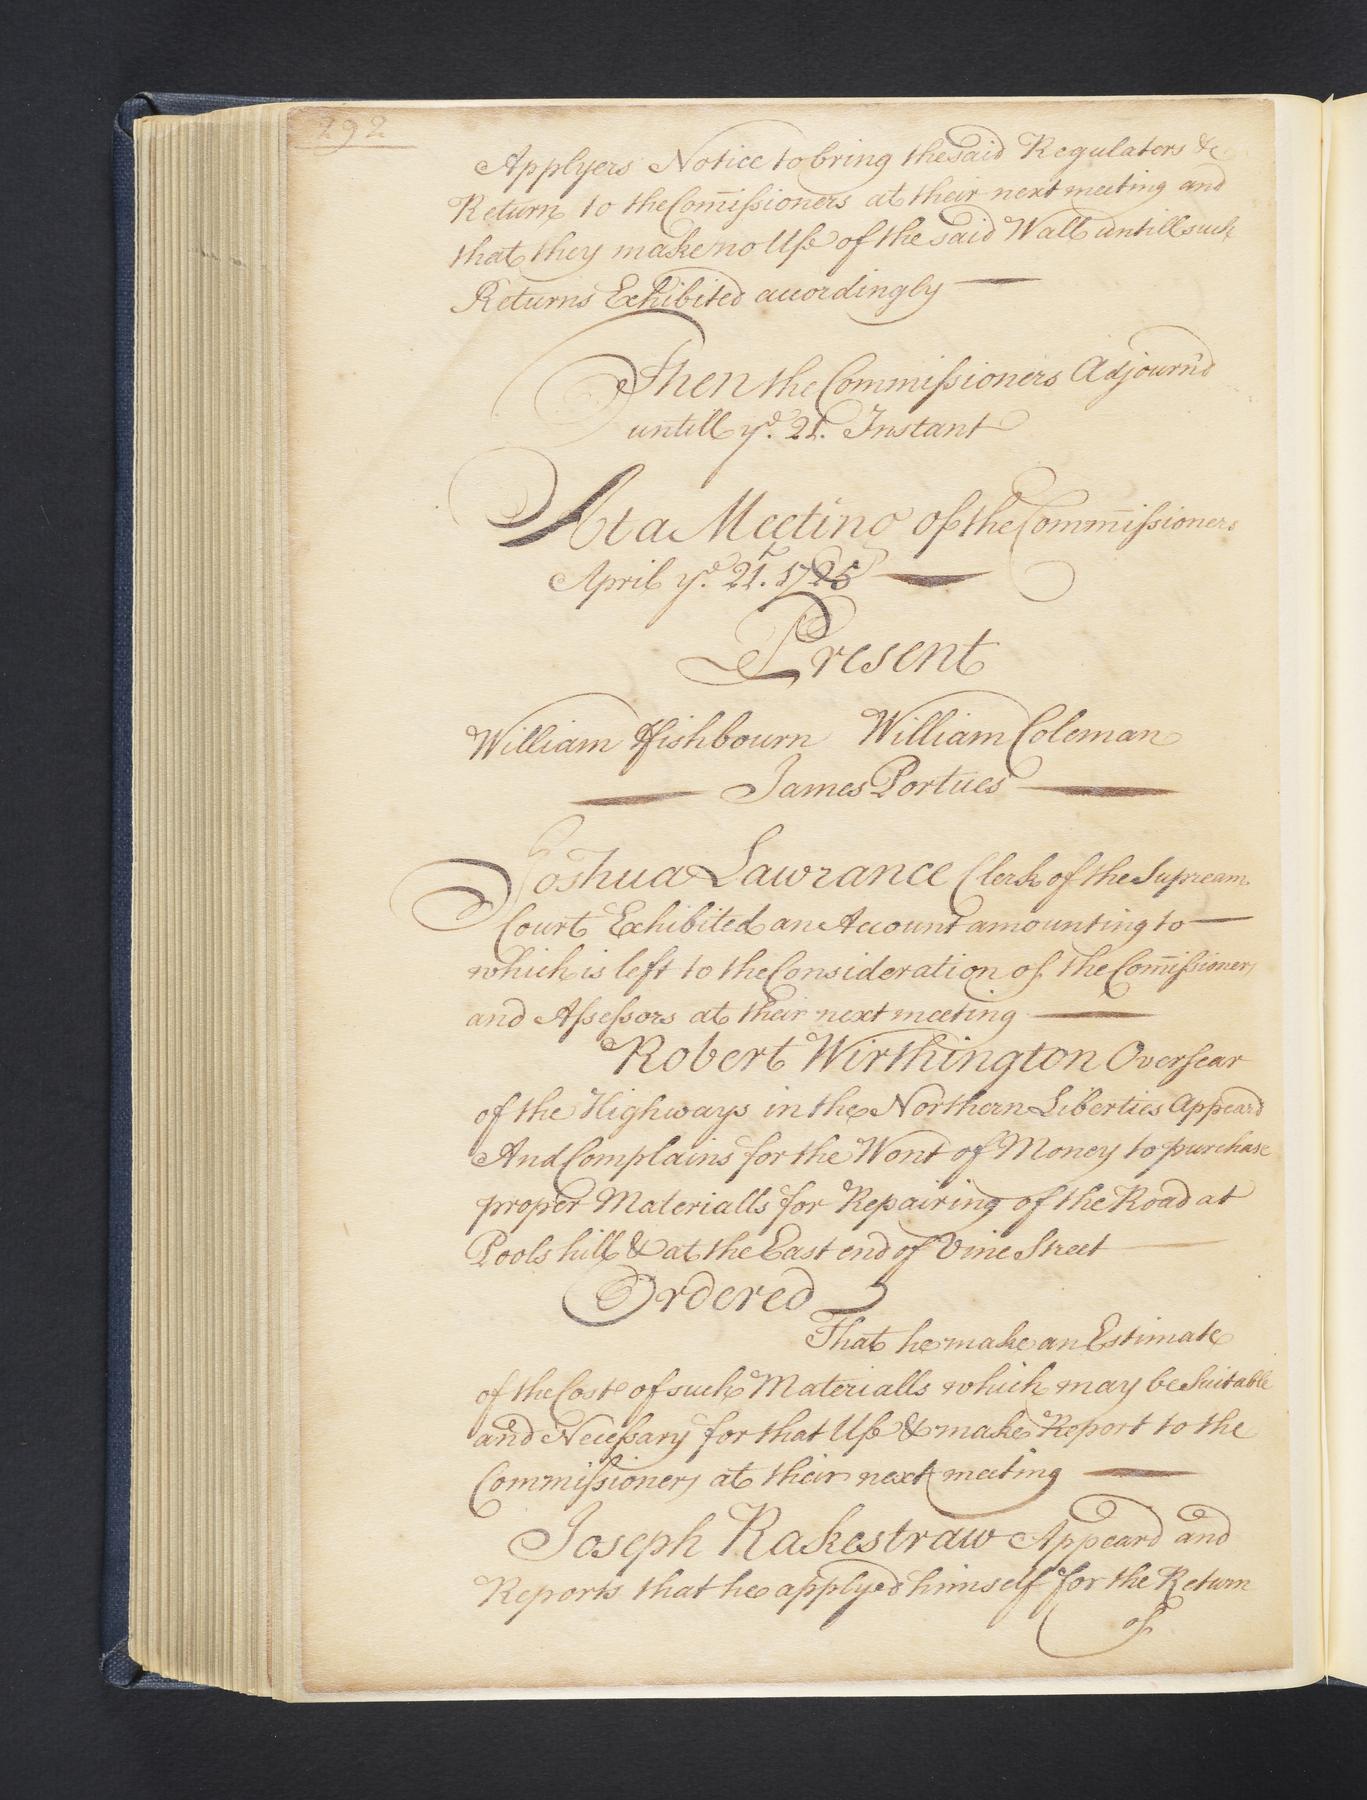 292
Applyers Notice to bring the said Regulators &c
Return to the Com̄issioners at their next meeting and
that they make no Use of the said Wall untill such
Returns Exhibited accordingly
Then the Commissioners Adjourn'd
untill ye. 21. Instant
At a Meeting of the Comm̄issioners
April ye. 21. 1725
Present
William Fishbourn William Coleman
James Portues
Joshua Lawrance Clerk of the Supream
Court Exhibited an Account amounting to
which is left to the Consideration of the Com̄issioners
and Assessors at their next meeting
Robert Wirthington Oversear
of the Highways in the Northern Liberties Appeard
And Complains for the Wont of Money to purchase
proper Materialls for Repairing of the Road at
Pools hill & at the East end of Vine Street
Ordered
That he make an Estimate
of the Cost of such Materialls which may be Suitable
and Necessary for that Use & make Report to the
Commissioners at their next meeting
Joseph Rakestraw Appeard and
Reports that he applyed himself for the Return
of